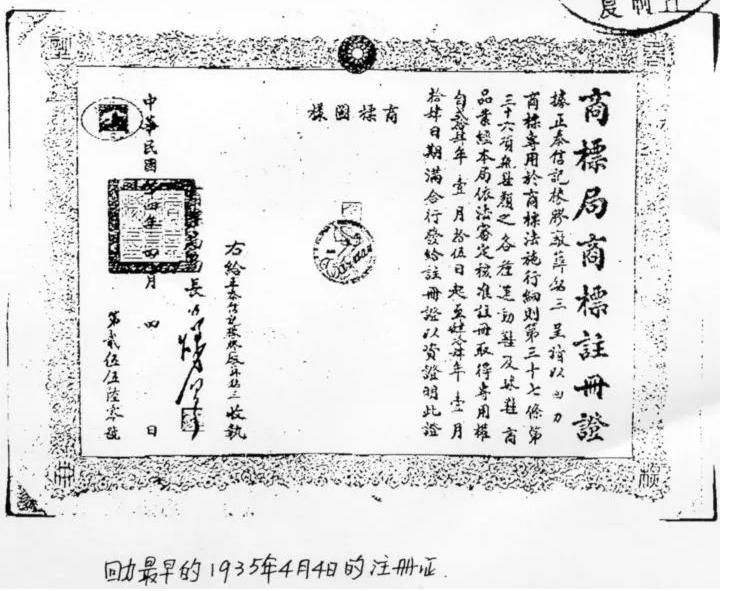 商標局商標註冊證
據正泰信記橡膠廠薛銘三呈請以回力
商標專用於商標法施行細則第三十七條第
三十六項鞋類之各種運動鞋及球鞋商
品業經本局依法審定核准註冊取得專用權
自 年壹月拾伍日起至 年壹月
拾肆日期滿合行發給註冊證以資證明此證
商標圖樣
右給正泰信記橡膠廠薛銘三收執
局長
中華民國 四年四月四日
第貳伍伍陸零號
回力最早的1935年4月4日的注册证.